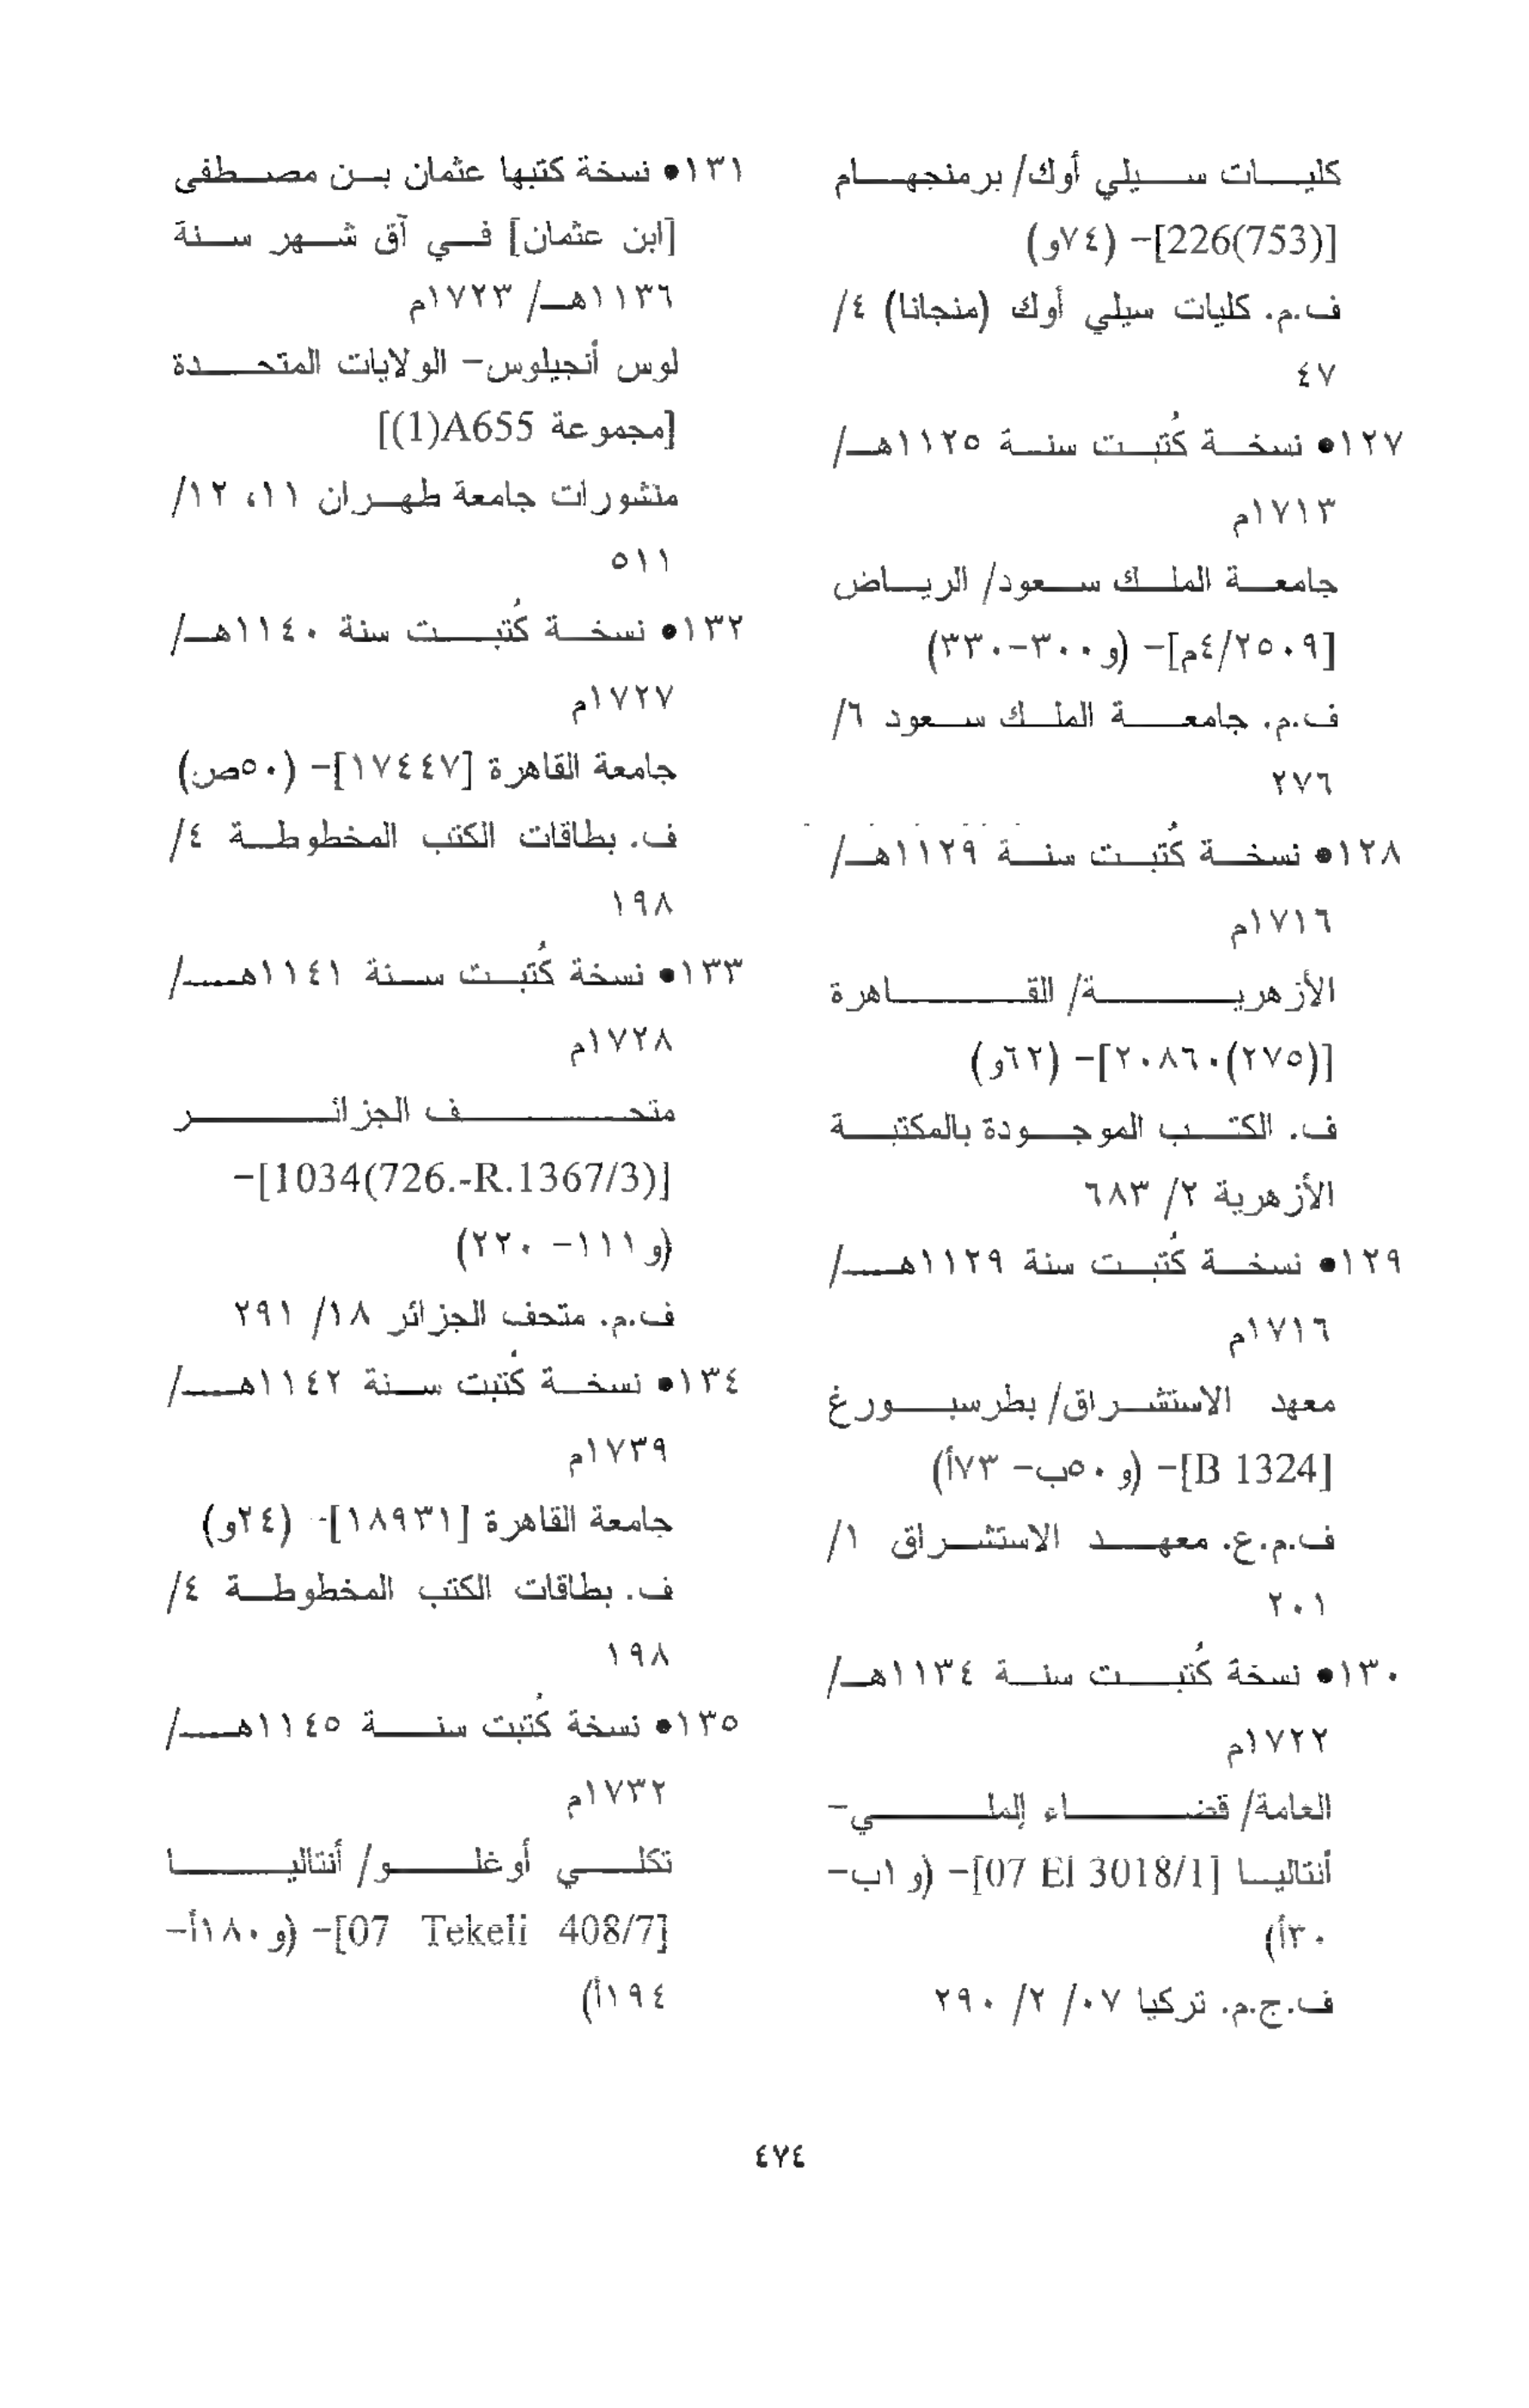 كليات سيلي أوك/ برمنجهام
[226(753)]- (٧٤و)
ف.م. كليات سيلي أوك (منجانا) ٤/
٤٧
١٢٧• نسخة كُتبت سنة ١١٢٥هـ/
١٧١٣م
جامعة الملك سعود/ الرياض
[٤/٢٥٠٩م]- (و٣٠٠-٣٣٠)
ف.م. جامعة الملك سعود ٦/
٢٧٦
١٢٨• نسخة كُتبت سنة ١١٢٩هـ/
١٧١٦م
الأزهرية/ القاهرة
[(٢٧٥)٢٠٨٦٠]- (٦٢و)
ف. الكتب الموجودة بالمكتبة
الأزهرية ٢/ ٦٨٣
١٢٩• نسخة كُتبت سنة ١١٢٩هـ/
١٧١٦م
معهد الاستشراق/ بطرسبورغ
[B 1324]- (و٥٠ب- ٧٣أ)
ف.م.ع. معهد الاستشراق ١/
٢٠١
١٣٠• نسخة كُتبت سنة ١١٣٤هـ/
١٧٢٢م
العامة/ قضاء إلملي-
أنتاليا [07 El 3018/1]- (و١ب-
٣٠أ)
ف.ج.م. تركيا ٠٧/ ٢/ ٢٩٠
١٣١• نسخة كتبها عثمان بن مصطفى
[ابن عثمان] في آق شهر سنة
١١٣٦هـ/ ١٧٢٣م
لوس أنجيلوس- الولايات المتحدة
[مجموعة A655(1)]
منشورات جامعة طهران ١١، ١٢/
٥١١
١٣٢• نسخة كُتبت سنة ١١٤٠هـ/
١٧٢٧م
جامعة القاهرة [١٧٤٤٧]- (٥٠ص)
ف. بطاقات الكتب المخطوطة ٤/
١٩٨
١٣٣• نسخة كُتبت سنة ١١٤١هـ/
١٧٢٨م
متحف الجزائر
[1034(726.-R.1367/3)]-
(و١١١- ٢٢٠)
ف.م. متحف الجزائر ١٨/ ٢٩١
١٣٤• نسخة كُتبت سنة ١١٤٢هـ/
١٧٣٩م
جامعة القاهرة [١٨٩٣١]- (٢٤و)
ف. بطاقات الكتب المخطوطة ٤/
١٩٨
١٣٥• نسخة كُتبت سنة ١١٤٥هـ/
١٧٣٢م
تكلي أوغلو/ أنتاليا
[07 Tekeli 408/7]- (و١٨٠أ-
١٩٤أ)
٤٧٤